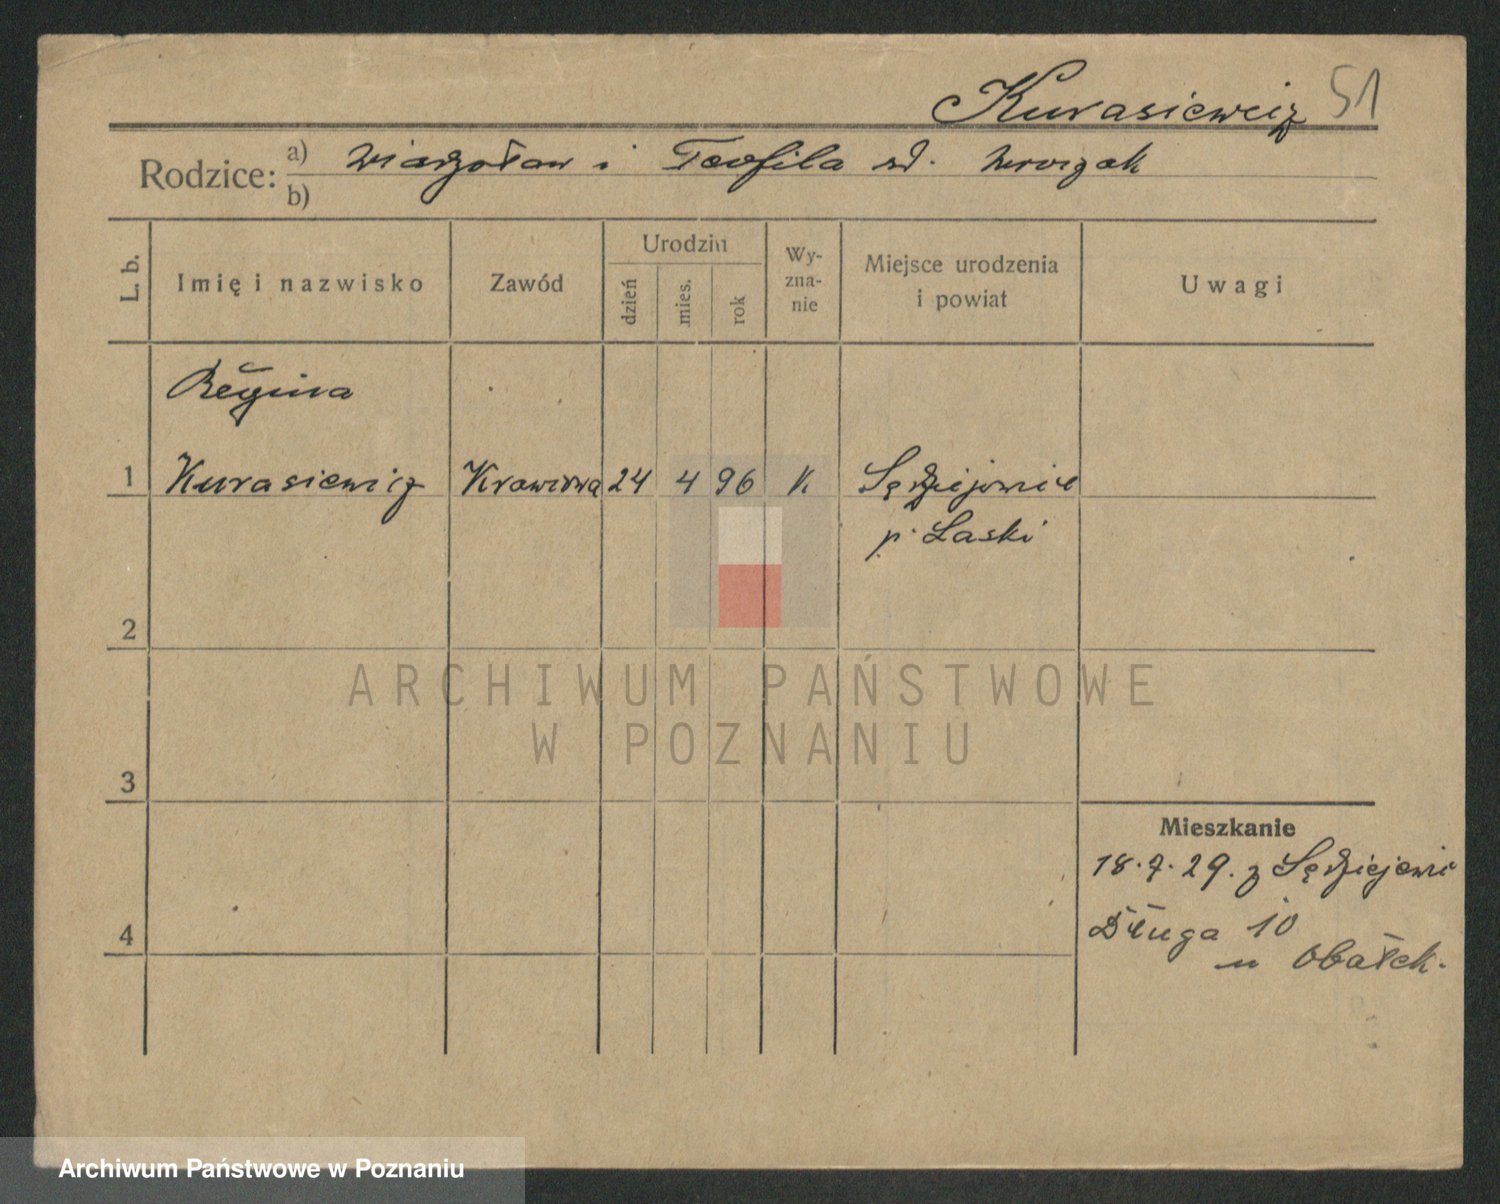 Kurasiewicz 51
Rodzice: a) i Teofila
b)
L. b.
Imię i nazwisko
Zawód
Urodzin
dzień
mies.
rok
Wy-
zna-
nie
Miejsce urodzenia
i powiat
Uwagi
Regina
1 Kurasiewicz Krawcowa 24 4 96 K Sędziejowice
p. Łaski
2
3
4
Mieszkanie
18.7.29. z Sędziejowic
Długa 10
u Obałek.
ARCHIWUM PAŃSTWOWE
W POZNANIU
Archiwum Państwowe w Poznaniu